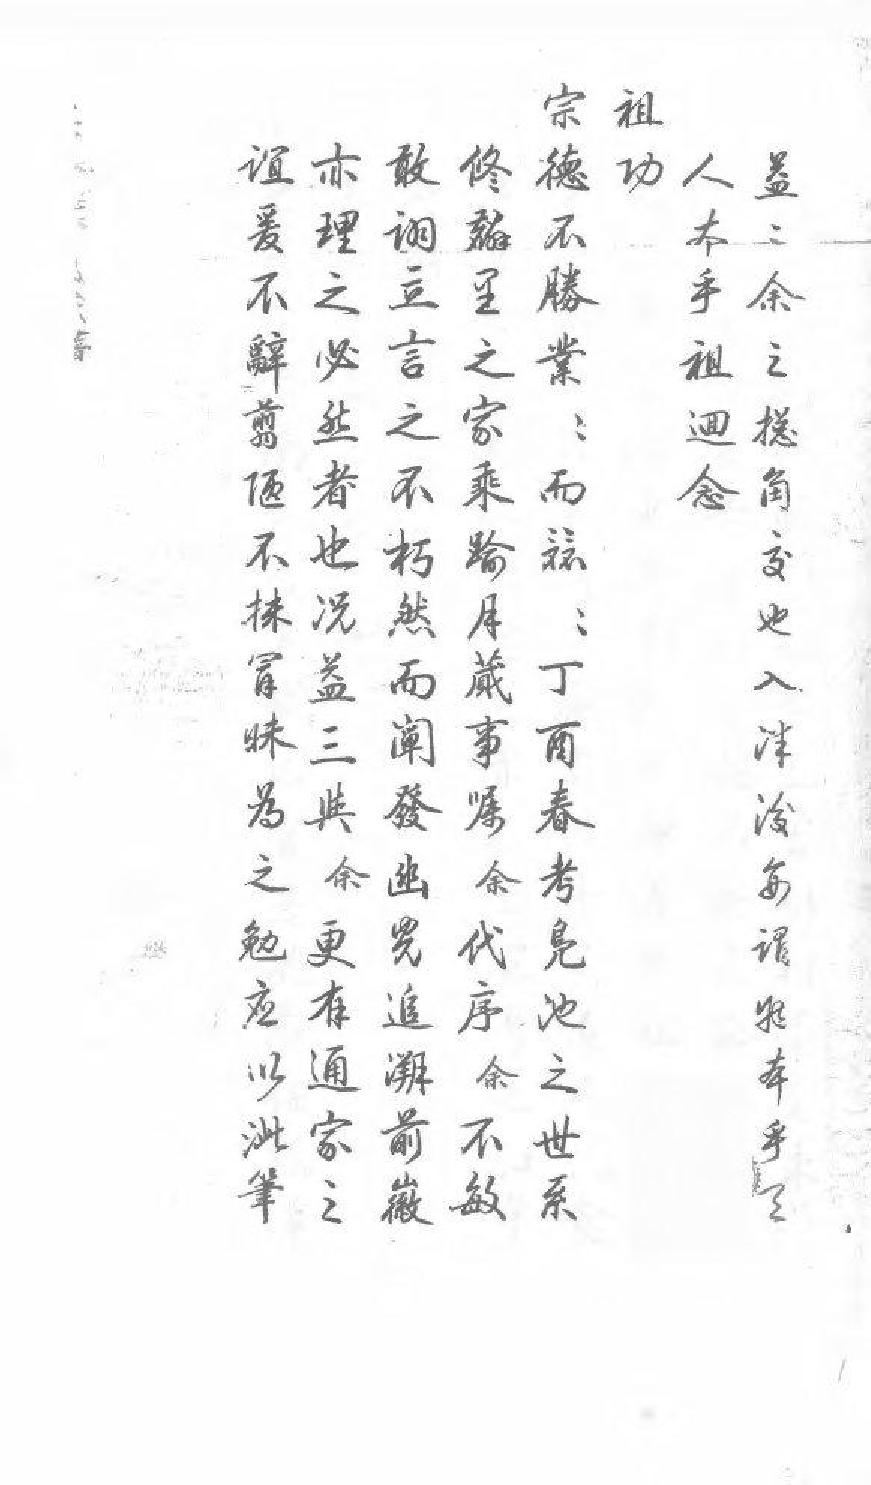 益三余之總角交也入泮後每謂物本乎天
人本乎祖迴念
祖功
宗德不勝業〻而兢〻丁酉春考凫池之世系
修羣里之家乘踰月蕆事嘱余代序余不敏
敢詡立言之不朽然而阐發幽光追溯前徽
亦理之必然者也况益三與余更有通家之
谊爰不辭翦陋不揣冒昧為之勉应以泚筆